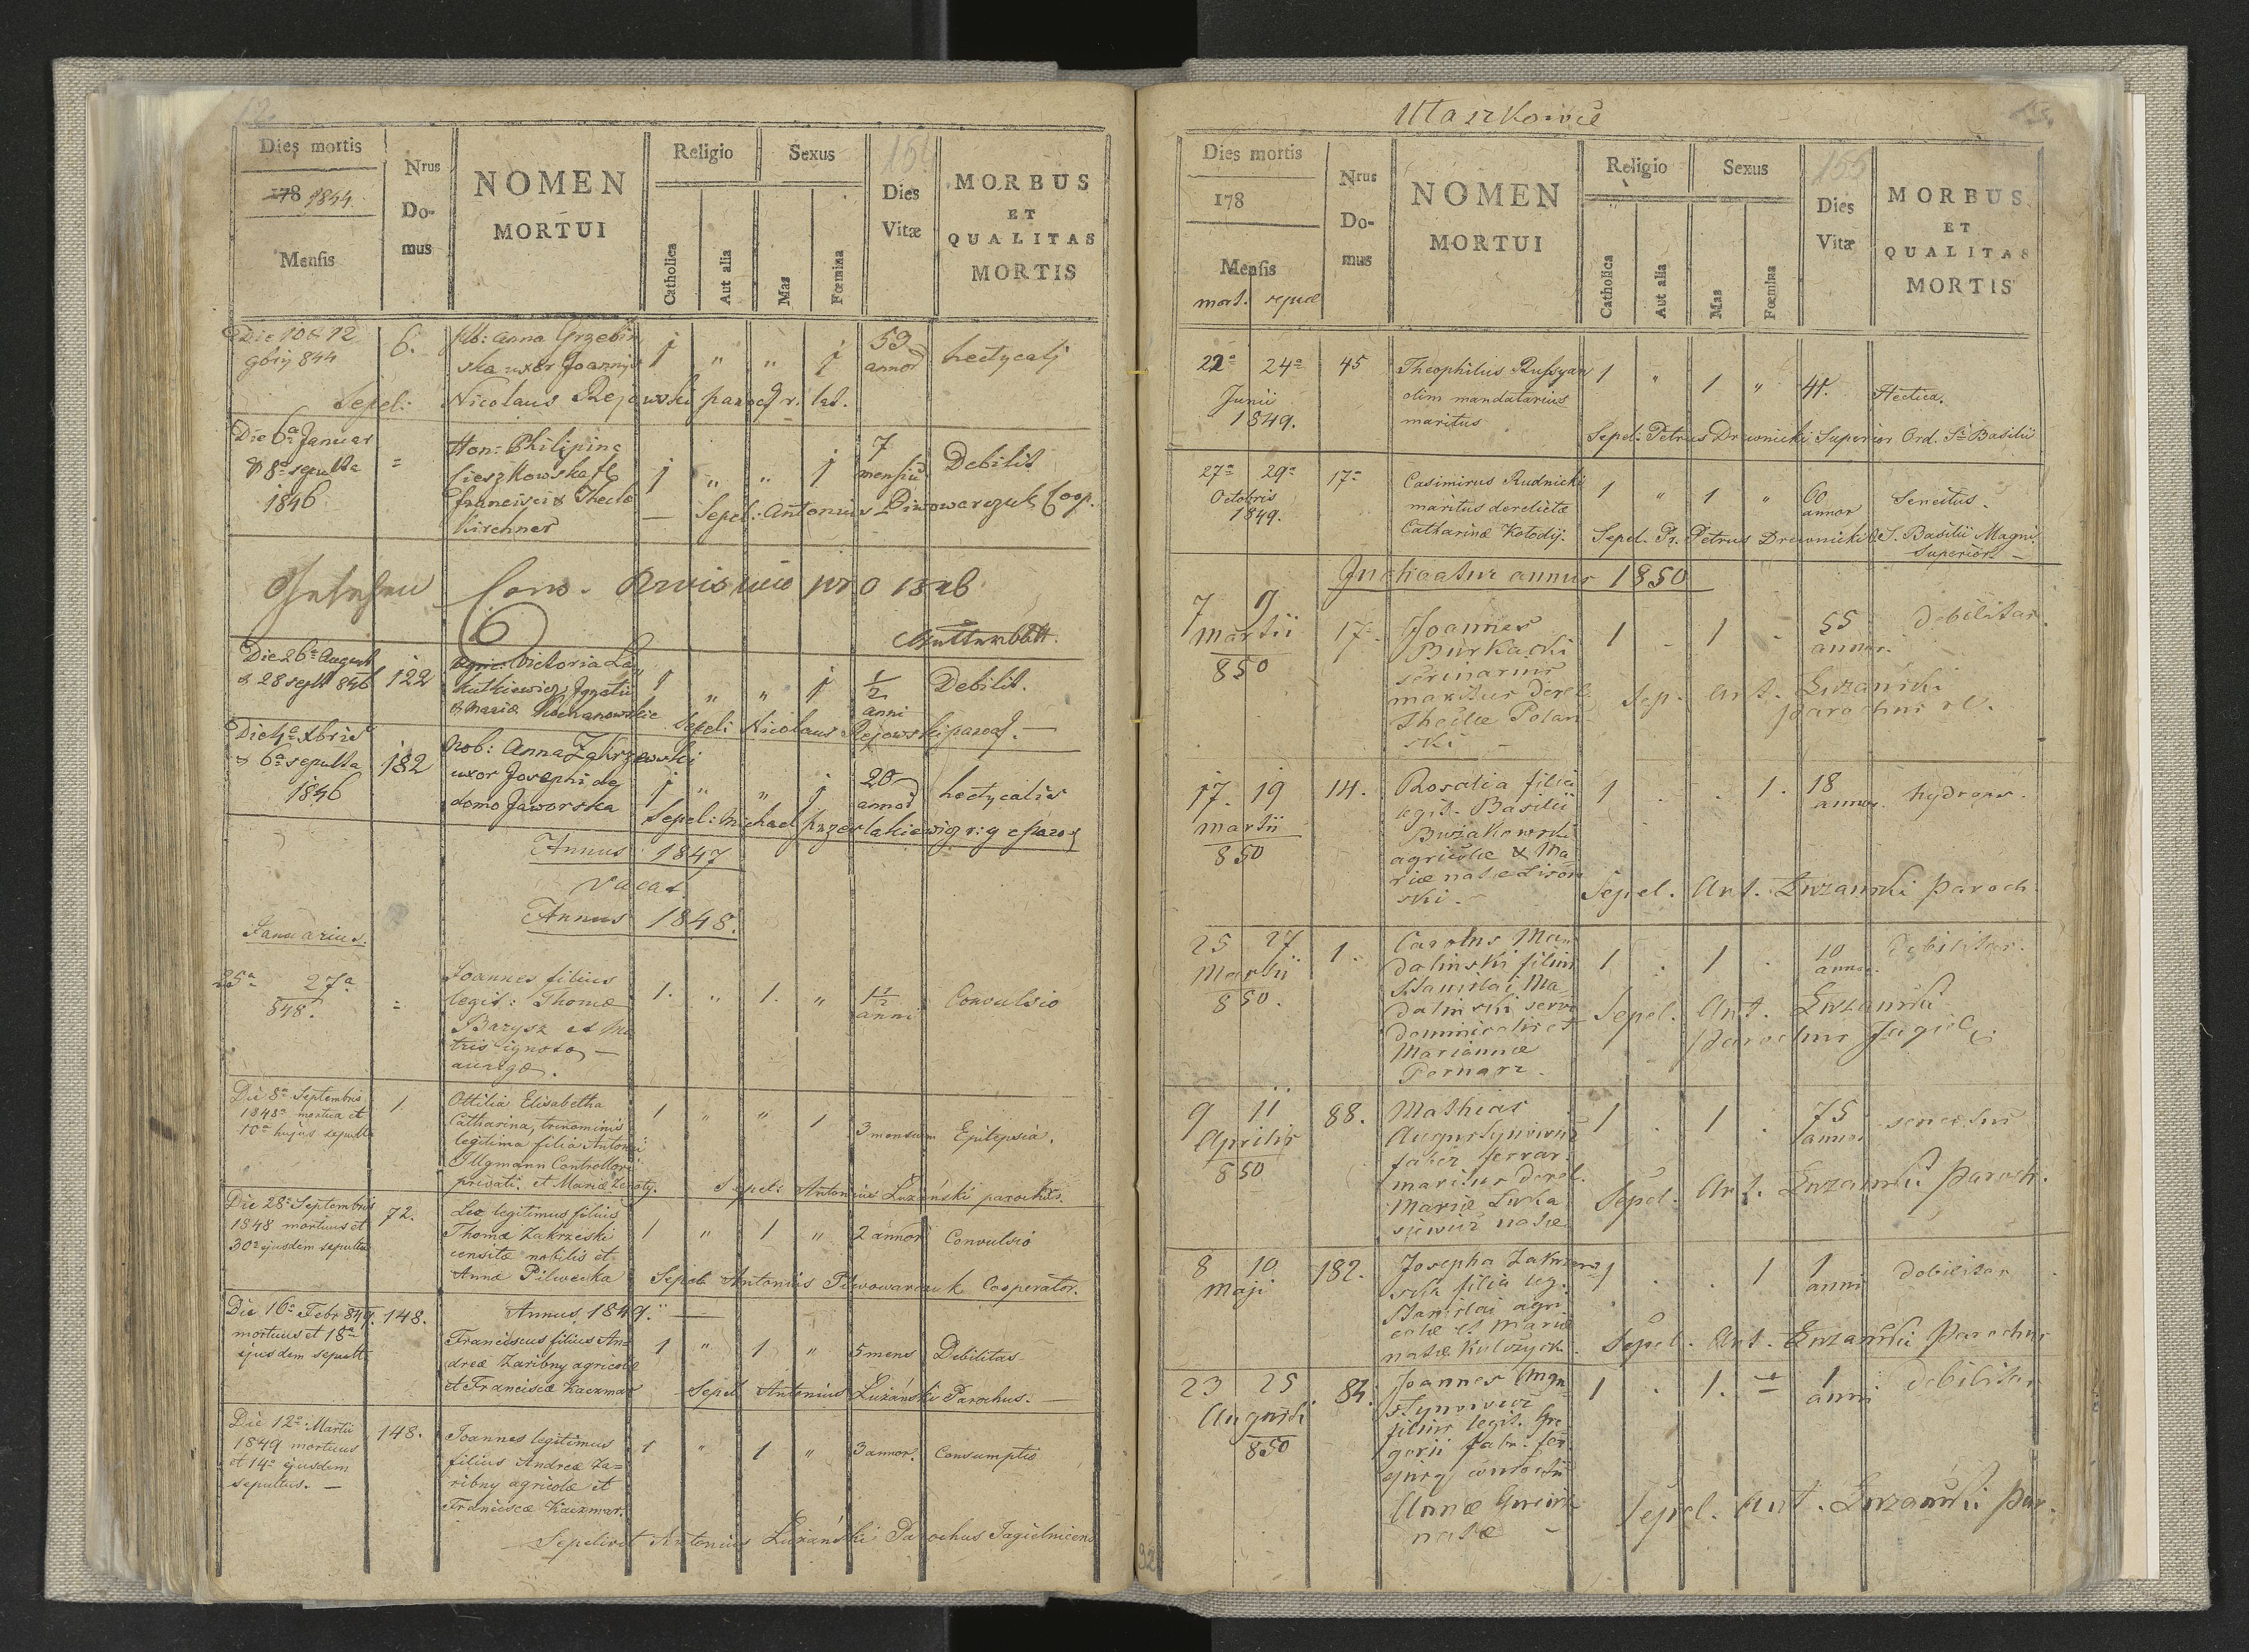 Dies mortis
178 1844.
Mensis
Nrus
Do-
mus
NOMEN
MORTUI
Religio
Catholica
Aut alia
Sexus
Mas
Fœmina
Dies
Vitæ
MORBUS
ET
QUALITAS
MORTIS
Die 10 & 12
844
6.
Anna Grzebin
ska uxor Joannis
1 " " 1
53
annor
hectycalis
Sepel: Nicolaus Rejowski paroch r. lat.
Die 6a Januar
& 8a sepulta
1846
=
Hon: Philipina
Cieszkowska
Francisci & Thecla
Kirchner
1 " " 1
7
mensiu
Debilit
Sepel: Antonius Piwowarczuk Coop.
pro 1846
Die 26a August
& 28 sept 846
122
Victoria
Ignatii
& Maria Kochanowskie
1 " " 1
1/2
anni
Debilit.
Sepeli Nicolaus Rejowski paroch. —
Die 4a Xbris
& 6a sepulta
1846
182
Nob: Anna Zakrzewski
uxor Josephi de
domo Jaworska
1 " " 1
20
annor
hectycalis
Sepel: Michael
Annus 1847
vacat
Annus 1848.
Januarius.
25a 27a
848.
=
Joannes filius
legit: Thomæ
Barysz et Ma
tris ignota —
1. " 1. "
1 1/2
anni
Convulsio
Die 8a Septembris
1848a mortua et
10a hujus sepulta
1.
Ottilia Elisabetha
Catharina, trinominis
legitima filia Antonii
Illgmann Controllori
privati. et Mariæ
1 " " 1
3 mensum
Epilepsia.
Sepel: Antonius Łużański parochus.
Die 28a Septembris
1848 mortuus et
30a ejusdem sepultus
72.
Leo legitimus filius
Thomæ Zakrzeski
censitæ nobilis et
Annæ Pilwecka
1 " 1 "
2 annor
Convulsio
Sepel: Antonius Piwowarczuk Cooperator.
Die 16a Febr 849.
mortuus et 18a
ejusdem sepult
148.
Annus 1849.
Franciscus filius An=
dreæ Zaribny agricolæ
et Franciscæ Kaczmar
1 " 1 "
5 mens
Debilitas
Sepel Antonius Łużański Parochus. —
Die 12a Martii
1849 mortuus
et 14a ejusdem
sepultus. —
148.
Joannes legitimus
filius Andreæ Za=
ribny agricolæ et
Franciscæ Kaczmar.
1 " 1 "
3 annor.
Consumptio
Sepelivit Antonius Łużański Parochus Jagielnicens
Dies mortis
178
Mensis
mort. sepul
Nrus
Do-
mus
NOMEN
MORTUI
Religio
Catholica
Aut alia
Sexus
Mas
Fœmina
155
Dies
Vitæ
MORBUS
ET
QUALITAS
MORTIS
22a 24a
Junii
1849.
45
Theophilus Russyan
olim mandatarius
maritus
1 " 1 "
41.
Hectica.
Sepel: Petrus Drewnicki Superior Ord. St Basilii
27a 29a
Octobris
1849.
17a
Casimirus Rudnicki
maritus derelictæ
Catharinæ Kołodij.
1 " 1 "
60
annor
Senectus.
Sepel. Pr. Petrus Drewnicki O. S. Basilii Magni.
Superior. —
Inchoatur annus 1850
7 9
Martii
850
17
Joannes
Burkacki
maritus derel.
Theclæ Polan
ski —
1 - 1 -
55
annor.
debilitas.
Sep. Ant. Łużański
parochus
17. 19
Martii
850
14.
Rosalia filia
legit. Basilii
agricolæ & Ma
riæ natæ
ski. —
1 . . 1.
18
annor.
hydrops.
Sepel. Ant. Łużański Paroch.
25 27
Martii
850.
1.
Carolus Ma
daliński filius
Stanislai Ma
daliński servi
dominicalis et
Mariannæ
Pernarz.
1 . 1 .
10
annor.
debilitas.
Sepel. Ant. Łużański
Parochus Jagiel.
9 11
Aprilis
850
88.
Mathias
Augustynowicz
faber ferrar.
maritus derel.
Mariæ Łuka
siewicz natæ
1 . 1 .
75
annor
senectus
Sepel. Ant. Łużański Paroch.
8 10
Maji
182.
Josepha Zakrzew
ska filia leg.
Stanislai agri
colæ et Mariæ
natæ
1 . . 1
1
anni
debilitas
Sepel. Ant. Łużański Parochus
23 25
Augusti
850
84.
Joannes Augu
stynowicz
filius legit. Gre
gorii fabr. fer
Annæ
natæ —
1 . 1.
1
anni
debilitas
Sepel. Ant. Łużański Par.
92